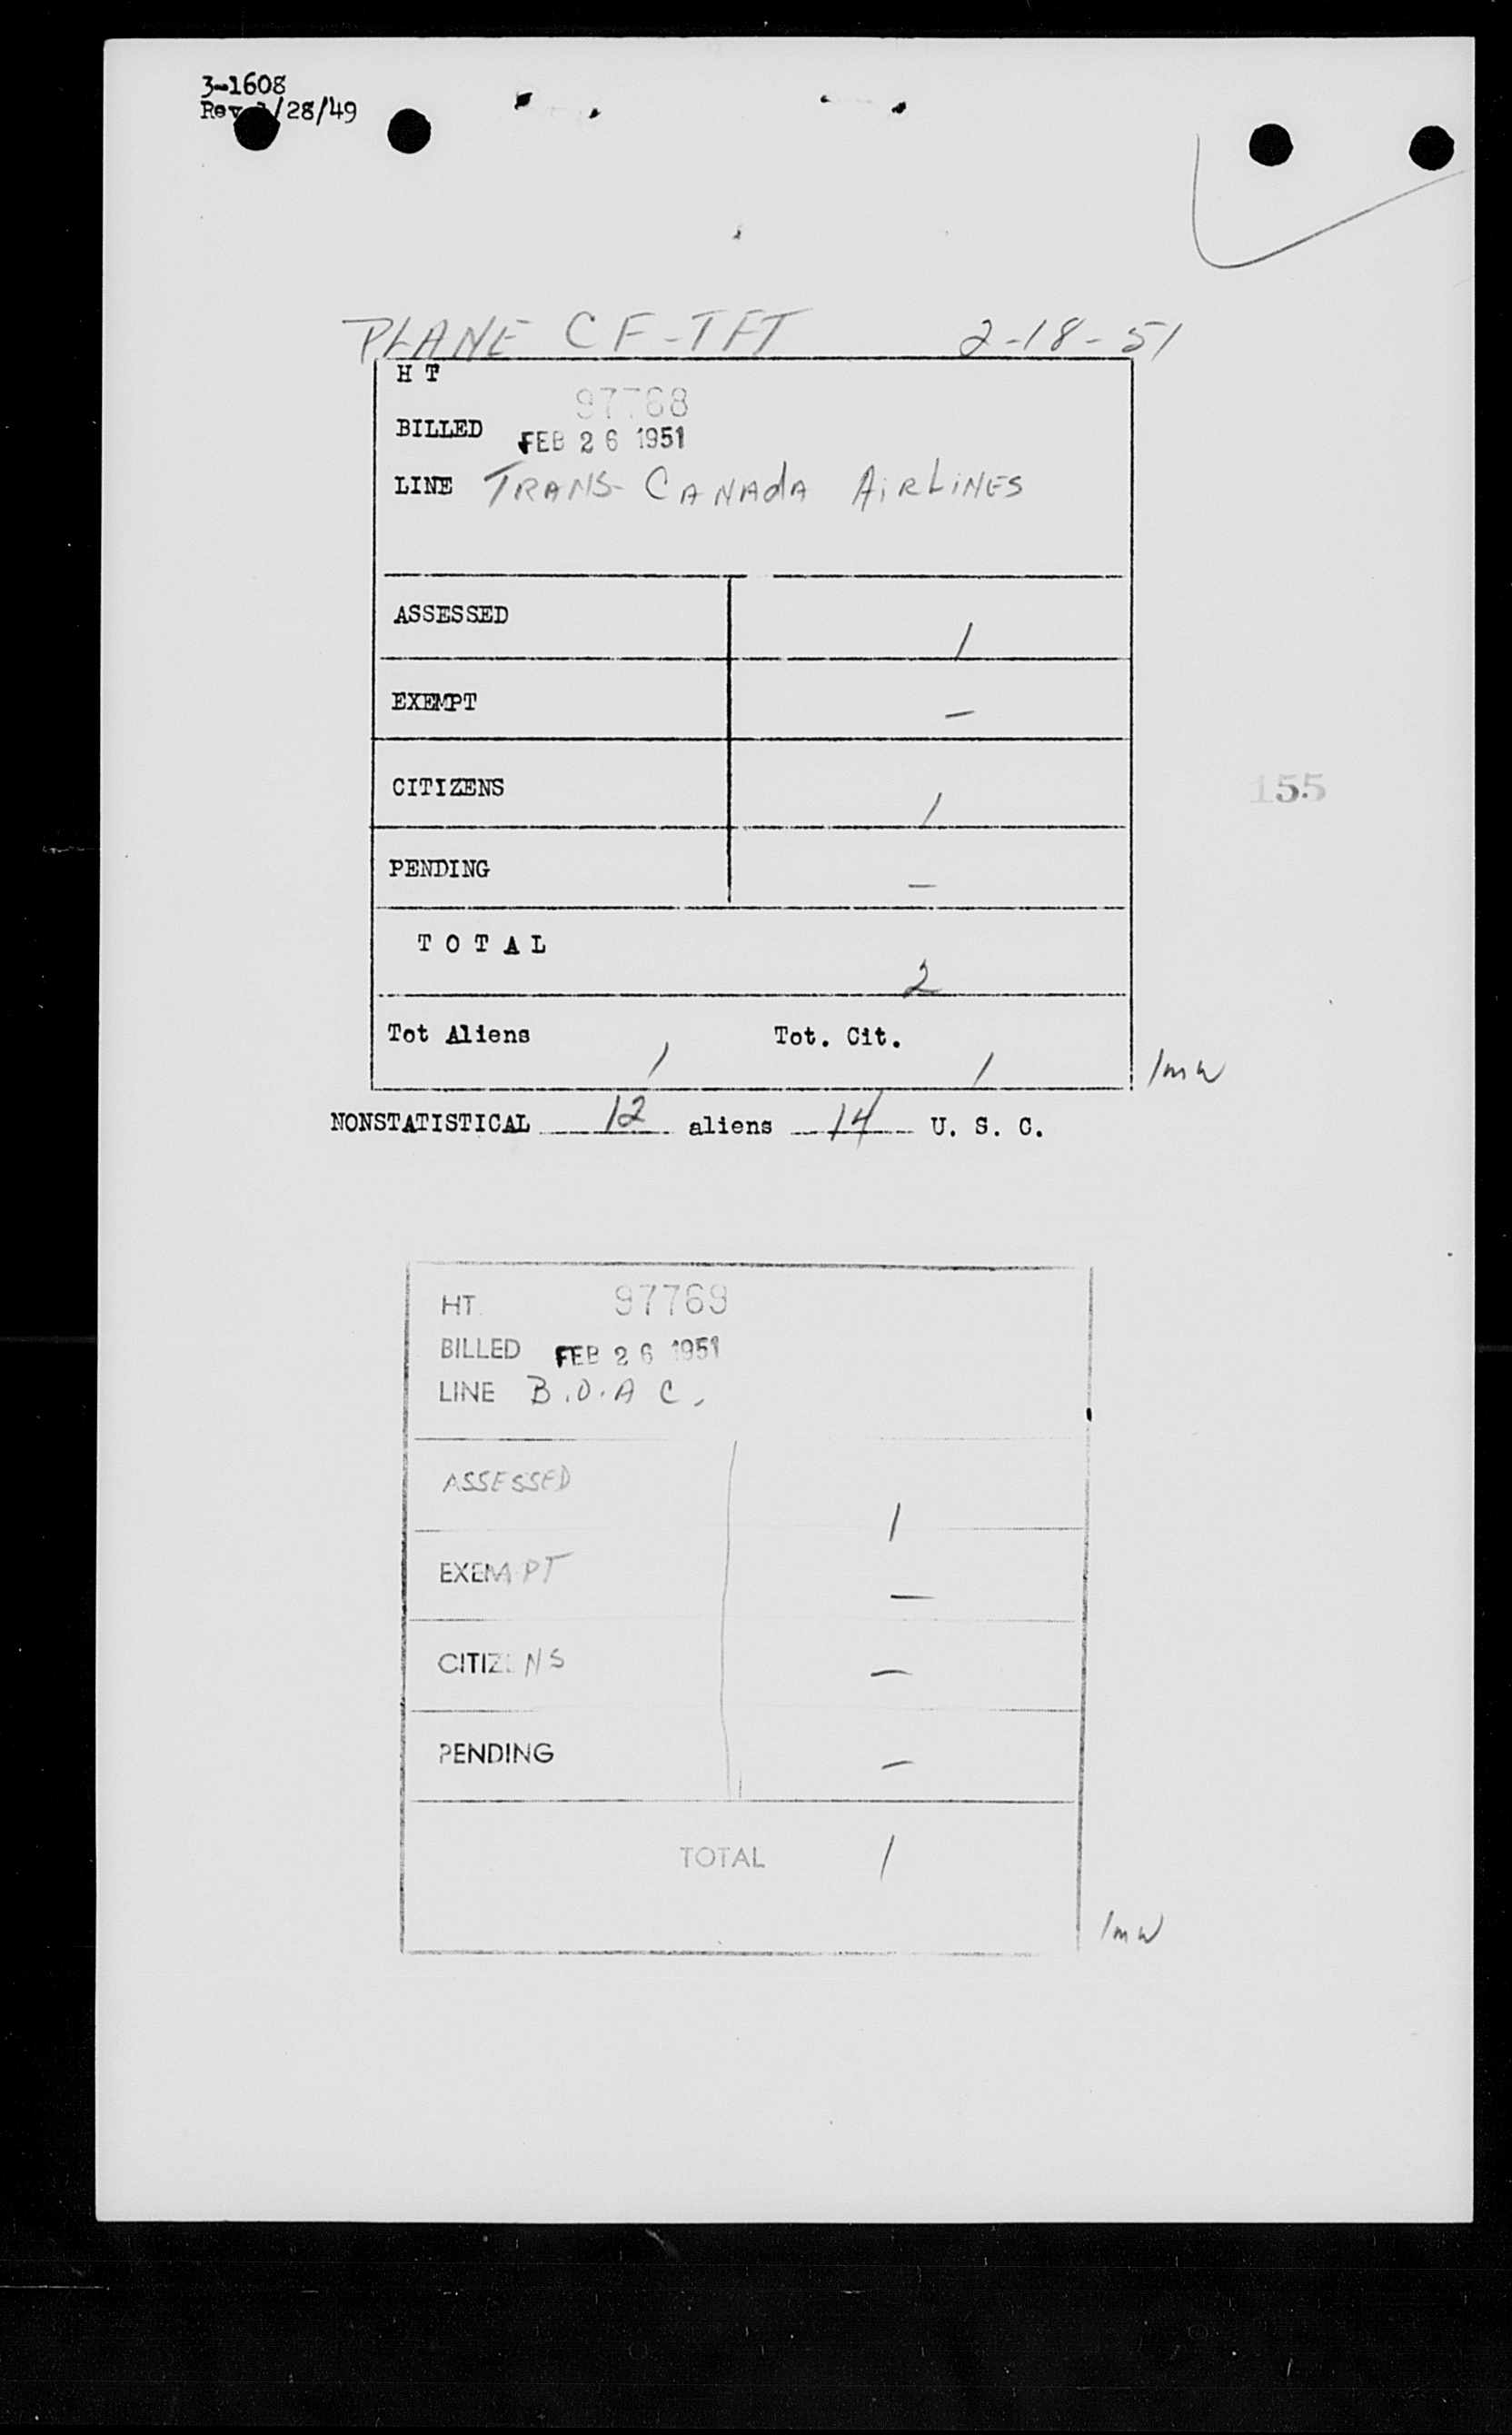 3-1608
Rev /28/49
PLANE CF-TFT 2-18-51
H T
97768
BILLED FEB 26 1951
LINE TRANS-CANADA AIRLINES
ASSESSED 1
EXEMPT —
CITIZENS 1
155
PENDING —
TOTAL
2
Tot Aliens 1 Tot. Cit. 1
NONSTATISTICAL 12 aliens 14 U. S. C.
HT. 97769
BILLED FEB 26 1951
LINE B.O.A C.
ASSESSED 1
EXEMPT —
CITIZENS —
PENDING —
TOTAL 1